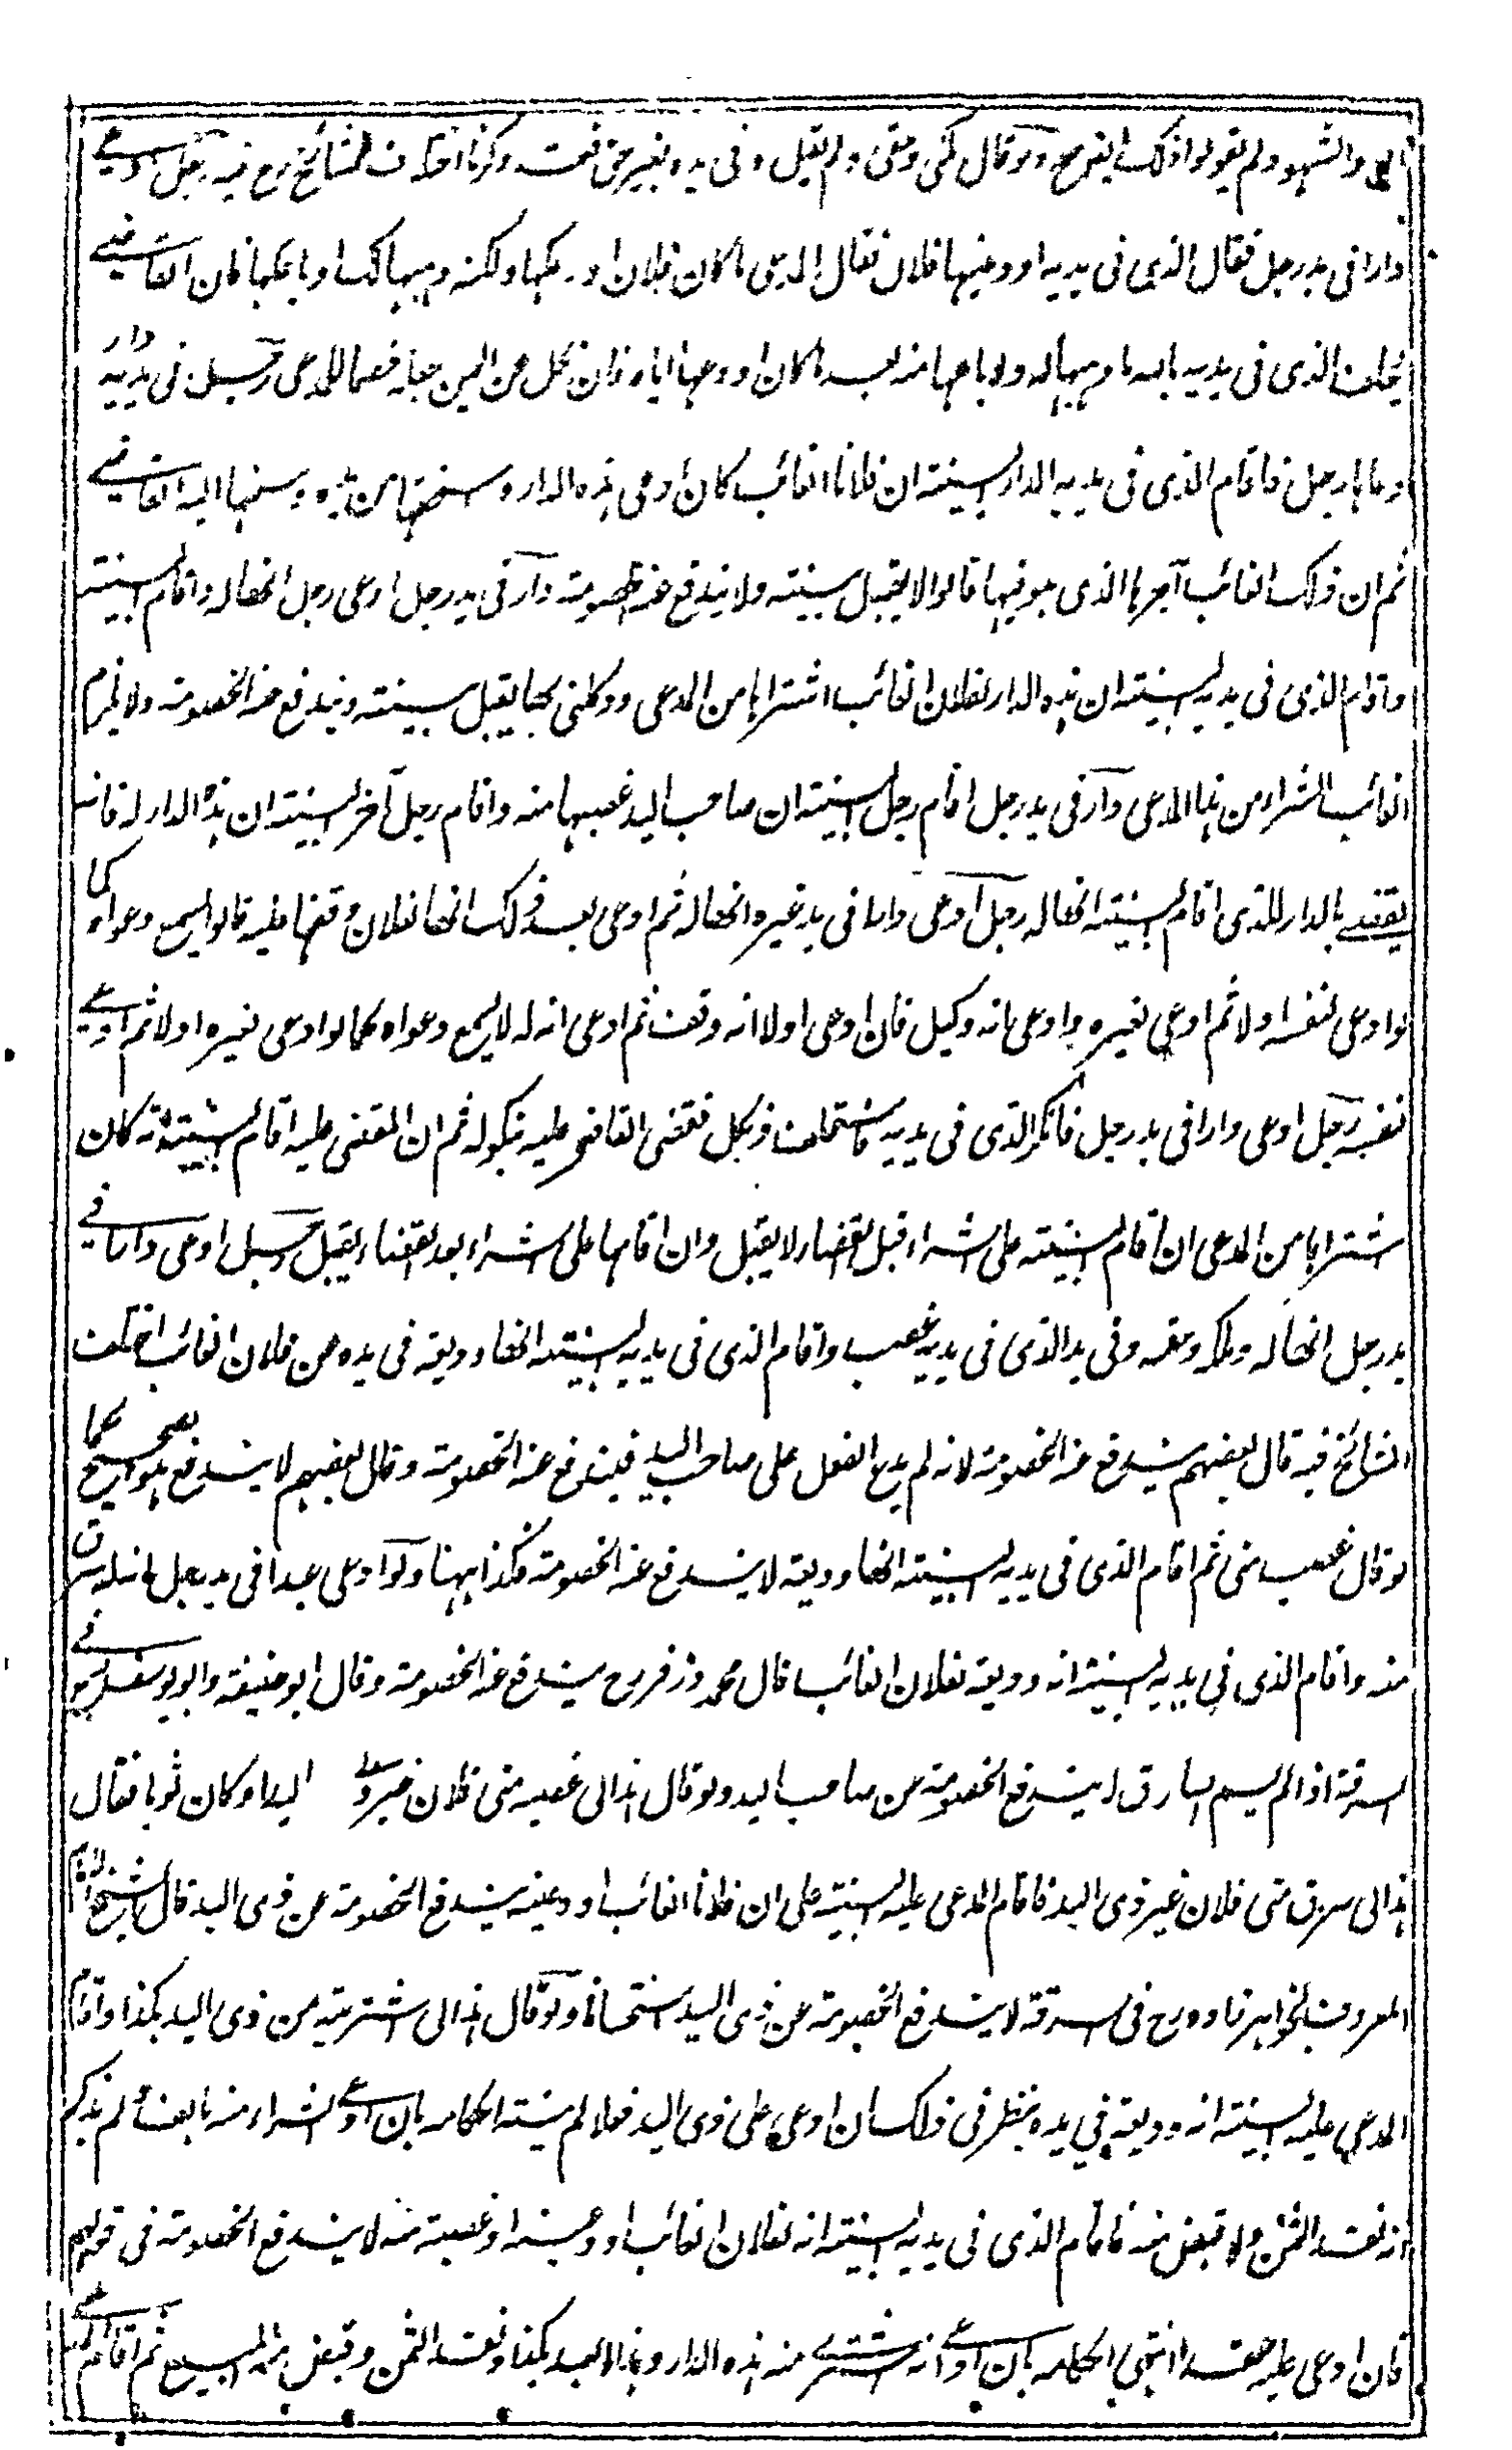 والشهود ولم يقولوا ذلك ولو قال ملكي وحقي ولم يقل وفي يده بغير حق فقد ذكرنا اختلاف المشائخ رح فيه رجل ادعى
دارا في يد رجل فقال الذي في يديه اودعنيها فلان فقال المدعي كان فلان اودعكها ولكنه وهبها لك او باعكها فان القاضي
يحلف الذي في يديه بالله ما وهبها له ولا باعها منه بعد ما كان اودعها اياه فان نكل عن اليمين جعله خصما للمدعي رجل في يديه دار
ادعاها رجل فاقام الذي في يديه الدار البينة ان فلانا الغائب كان ادعى هذه الدار واستحقها من يده وسلمها اليه القاضي
ثم ان ذلك الغائب آجرها الذي هو فيها قالوا لا يقبل بينته ولا يندفع عنه الخصومة دار في يد رجل ادعى رجل انها له واقام البينة
واقام الذي في يديه البينة ان هذه الدار لفلان الغائب اشتراها من المدعي ووكلني بها يقبل بينته ويندفع عنه الخصومة ولا يلزم
الغائب الشراء من هذا المدعي دار في يد رجل اقام رجل البينة ان صاحب اليد غصبها منه واقام رجل آخر البينة ان هذه الدار له فانه
يقضى بالدار للذي اقام البينة انها له رجل ادعى دارا في يد غيره انها له ثم ادعى بعد ذلك انها لفلان وقفها عليه قالوا يسمع دعواه كما
لو ادعى لنفسه اولا ثم ادعى لغيره وادعى انه وكيل فان ادعى اولا انه وقف ثم ادعى انه له لا يسمع دعواه كما لو ادعى لغيره اولا ثم ادعى
لنفسه رجل ادعى دارا في يد رجل فانكر الذي في يديه فاستحلف ونكل فقضى القاضي عليه بنكوله ثم ان المقضي عليه اقام البينة انه كان
اشتراها من المدعي ان اقام البينة على شراء قبل القضاء لا يقبل وان اقامها على شراء بعد القضاء يقبل رجل ادعى دارا في
يد رجل انها له وملكه وحقه وفي يد الذي في يديه غصب واقام الذي في يديه البينة انها وديعة في يده من فلان الغائب اختلف
المشائخ فيه قال بعضهم يندفع عنه الخصومة لانه لم يدع الفعل على صاحب اليد فيندفع عنه الخصومة وقال بعضهم لا يندفع هو الصحيح كما
لو قال غصب مني ثم اقام الذي في يديه البينة انها وديعة لا يندفع عنه الخصومة فكذا ههنا ولو ادعى عبدا في يد رجل انه له سرق
منه واقام الذي في يديه البينة انه وديعة لفلان الغائب قال محمد وزفر رح يندفع عنه الخصومة وقال ابو حنيفة وابو يوسف رح في
السرقة اذا لم يسم السارق لا يندفع الخصومة عن صاحب اليد ولو قال هذا لي غصبه مني فلان غير ذي اليد او كان ثوبا فقال
هذا لي سرق مني فلان غير ذي اليد فاقام المدعى عليه البينة على ان فلانا الغائب اودعنيه يندفع الخصومة عن ذي اليد قال الشيخ الامام
المعروف بخواهرزاده رح في السرقة لا يندفع الخصومة عن ذي اليد استحسانا ولو قال هذا لي اشتريته من ذي اليد بكذا واقام
المدعى عليه البينة انه وديعة في يده ينظر في ذلك ان ادعى على ذي اليد فعلا لم ينته احكامه بان ادعى الشراء منه بالف ولم يذكر
انه نقد الثمن ولا قبض منه فاقام الذي في يديه البينة انه لفلان الغائب اودعنيه او غصبته منه لا يندفع الخصومة في قولهم
فان ادعى عليه عقدا انتهى احكامه بان ادعى انه اشترى منه هذه الدار وهذا العبد بكذا ونقد الثمن وقبض منه المبيع ثم اقام